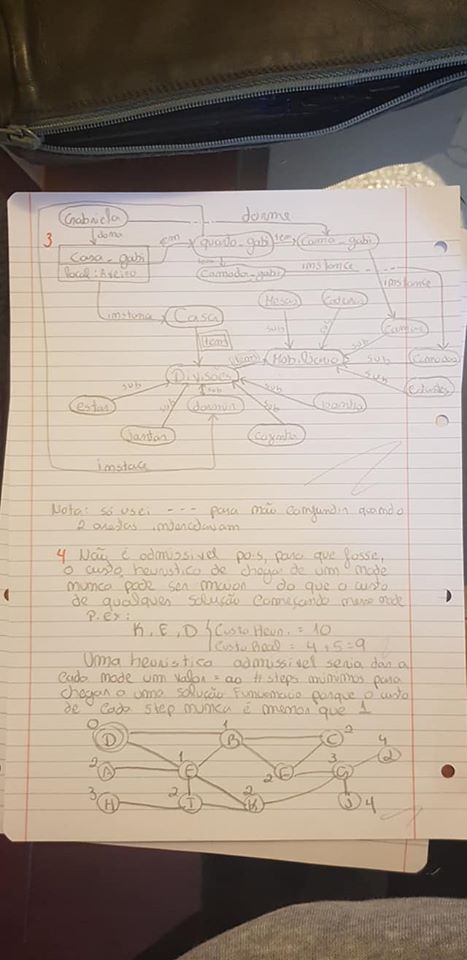 3
Gabriela
dorme
dona
Casa_gabi
local: Aveiro
tem
quarto_gabi
tem
Cama_gabi
tem
Comoda_gabi
instance
instance
instance
Casa
Mesas
Cadeiras
sub
sub
Camas
sub
Comodas
tem
Divisões
tem
Mobiliário
sub
sub
Estantes
sub
estar
sub
jantar
sub
dormir
sub
cozinha
sub
banho
instace
Nota: só usei --- para não confundir quando
2 arestas intercetavam
4 Não é admissivel pois, para que fosse,
o custo heuristico de chegar de um node
nunca pode ser maior do que o custo
de qualquer solução começando nesse node
P. Ex:
K, E, D { Custo Heur. = 10
Custo Real = 4 + 5 = 9
Uma heuristica admissivel seria dar a
cada node um valor = ao # steps minimos para
chegar a uma solução. Funcionaria porque o custo
de cada step nunca é menor que 1
0 D
1 B
2 C
2 A
1 E
2 F
3 G
4
3 H
2 I
2 K
J 4